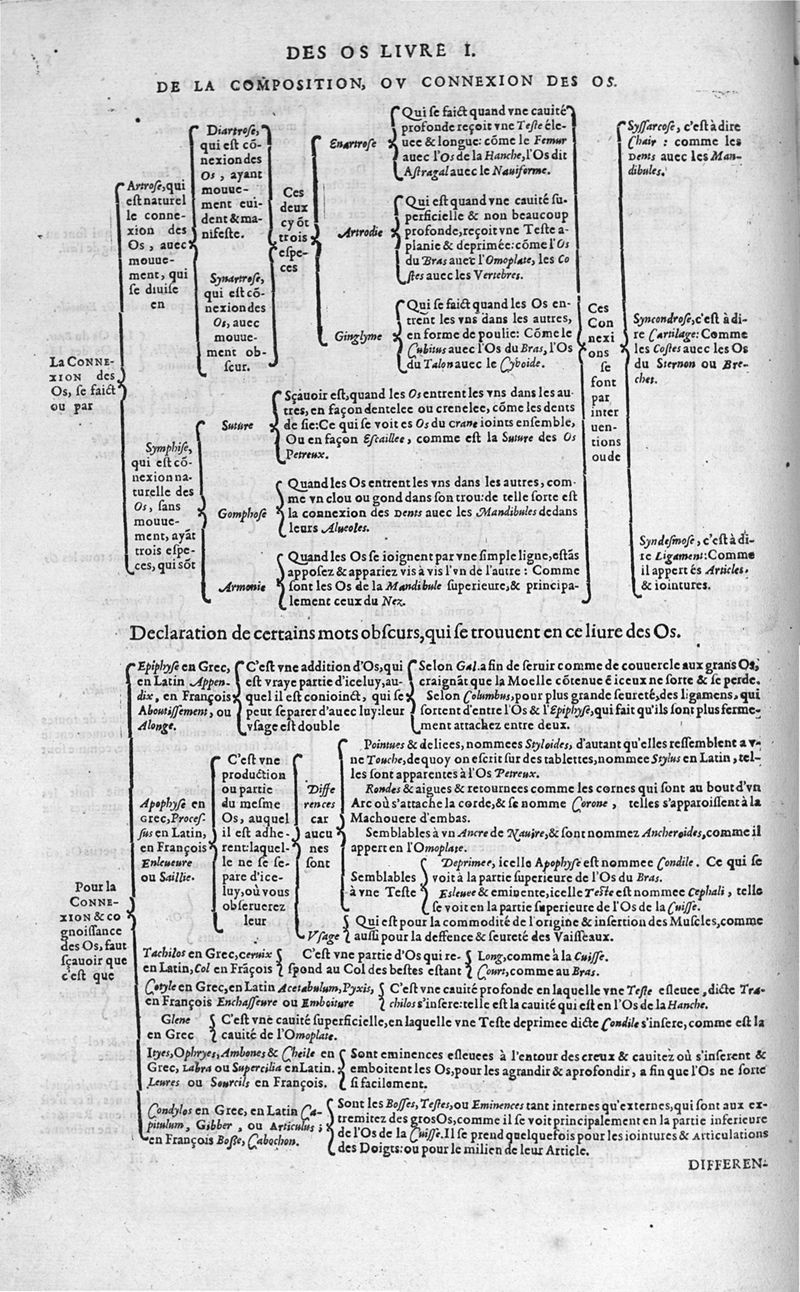 DES OS LIVRE I.
DE LA COMPOSITION, OV CONNEXION DES OS.
La CONNE-
XION des
Os, se faict
ou par
Artrose, qui
est naturel
le conne-
xion des
Os, auec
mouue-
ment, qui
se diuise
en
Diartrose,
qui est cō-
nexion des
Os, ayant
mouue-
ment eui-
dent & ma-
nifeste.
Synartrose,
qui est cō-
nexion des
Os, auec
mouue-
ment ob-
scur.
Ces
deux
cy ōt
trois
espe-
ces
Enartrose
Qui se faict quand vne cauité
profonde reçoit vne Teste éle-
uee & longue: cōme le Femur
auec l'Os de la Hanche, l'Os dit
Astragal auec le Nauiforme.
Artrodie
Qui est quand vne cauité su-
perficielle & non beaucoup
profonde, reçoit vne Teste a-
planie & deprimée: cōme l'Os
du Bras auec l'Omoplate, les Co
stes auec les Vertebres.
Ginglyme
Qui se faict quand les Os en-
trent les vns dans les autres,
en forme de poulie: Cōme le
Cubitus auec l'Os du Bras, l'Os
du Talon auec le Cyboide.
Symphise,
qui est cō-
nexion na-
turelle des
Os, sans
mouue-
ment, ayāt
trois espe-
ces, qui sōt
Suture
Sçauoir est, quand les Os entrent les vns dans les au-
tres, en façon dentelee ou crenelee, cōme les dents
de sie: Ce qui se voit es Os du crane ioints ensemble,
Ou en façon Escaillee, comme est la Suture des Os
Petreux.
Gomphose
Quand les Os entrent les vns dans les autres, com-
me vn clou ou gond dans son trou: de telle sorte est
la connexion des Dents auec les Mandibules dedans
leurs Alueoles.
Armonie
Quand les Os se ioignent par vne simple ligne, estās
apposez & appariez vis à vis l'vn de l'autre: Comme
sont les Os de la Mandibule superieure, & principa-
lement ceux du Nez.
Ces
Con
nexi
ons
se
font
par
inter
uen-
tions
ou de
Syssarcose, c'est à dire
Chair: comme les
Dents auec les Man-
dibules.
Syncondrose, c'est à di-
re Cartilage: Comme
les Costes auec les Os
du Sternon ou Bre-
chet.
Syndesmose, c'est à di-
re Ligament: Comme
il appert és Articles,
& iointures.
Declaration de certains mots obscurs, qui se trouuent en ce liure des Os.
Pour la
CONNE-
XION & co
gnoissance
des Os, faut
sçauoir que
c'est que
Epiphyse en Grec,
en Latin Appen-
dix, en François
Aboutissement, ou
Alonge.
C'est vne addition d'Os, qui
est vraye partie d'iceluy, au-
quel il est conioinct, qui se
peut separer d'auec luy: leur
vsage est double
Selon Gal. a fin de seruir comme de couuercle aux grans Os,
craignāt que la Moelle cōtenue ē iceux ne sorte & se perde.
Selon Columbus, pour plus grande seureté, des ligamens, qui
sortent d'entre l'Os & l'Epiphyse, qui fait qu'ils sont plus ferme-
ment attachez entre deux.
Apophyse en
Grec, Proces-
sus en Latin,
en François
Enleueure
ou Saillie.
C'est vne
production
ou partie
du mesme
Os, auquel
il est adhe-
rent: laquel-
le ne se se-
pare d'ice-
luy, où vous
obseruerez
leur
Diffe
rences
car
aucu
nes
sont
Pointues & delices, nommees Styloides, d'autant qu'elles ressemblent a v-
ne Touche, dequoy on escrit sur des tablettes, nommee Stylus en Latin, tel-
les sont apparentes à l'Os Petreux.
Rondes & aigues & retournees comme les cornes qui sont au bout d'vn
Arc où s'attache la corde, & se nomme Corone, telles s'apparoissent à la
Machouere d'embas.
Semblables à vn Ancre de Nauire, & sont nommez Ancheroides, comme il
appert en l'Omoplate.
Semblables
à vne Teste
Deprimee, icelle Apophyse est nommee Condile. Ce qui se
voit à la partie superieure de l'Os du Bras.
Esleuee & eminente, icelle Teste est nommee Cephali, telle
se voit en la partie superieure de l'Os de la Cuisse.
Vsage
Qui est pour la commodité de l'origine & insertion des Muscles, comme
aussi pour la deffence & seureté des Vaisseaux.
Tachilos en Grec, ceruix
en Latin, Col en Frāçois
C'est vne partie d'Os qui re-
spond au Col des bestes estant
Long, comme à la Cuisse.
Court, comme au Bras.
Cotyle en Grec, en Latin Acetabulum, Pyxis,
en François Enchasseure ou Emboiture
C'est vne cauité profonde en laquelle vne Teste esleuee, dicte Tra-
chilos s'insere: telle est la cauité qui est en l'Os de la Hanche.
Glene
en Grec
C'est vne cauité superficielle, en laquelle vne Teste deprimee dicte Condile s'insere, comme est la
cauité de l'Omoplate.
Ityes, Ophryes, Ambones & Cheile en
Grec, Labra ou Supercilia en Latin.
Leures ou Sourcils en François.
Sont eminences esleuees à l'entour des creux & cauitez où s'inserent &
emboitent les Os, pour les agrandir & aprofondir, a fin que l'Os ne sorte
si facilement.
Condylos en Grec, en Latin Ca-
pitulum, Gibber, ou Articulus;
en François Bosse, Cabochon.
Sont les Bosses, Testes, ou Eminences tant internes qu'externes, qui sont aux ex-
tremitez des gros Os, comme il se voit principalement en la partie inferieure
de l'Os de la Cuisse. Il se prend quelquefois pour les iointures & Articulations
des Doigts: ou pour le milien de leur Article.
DIFFEREN-